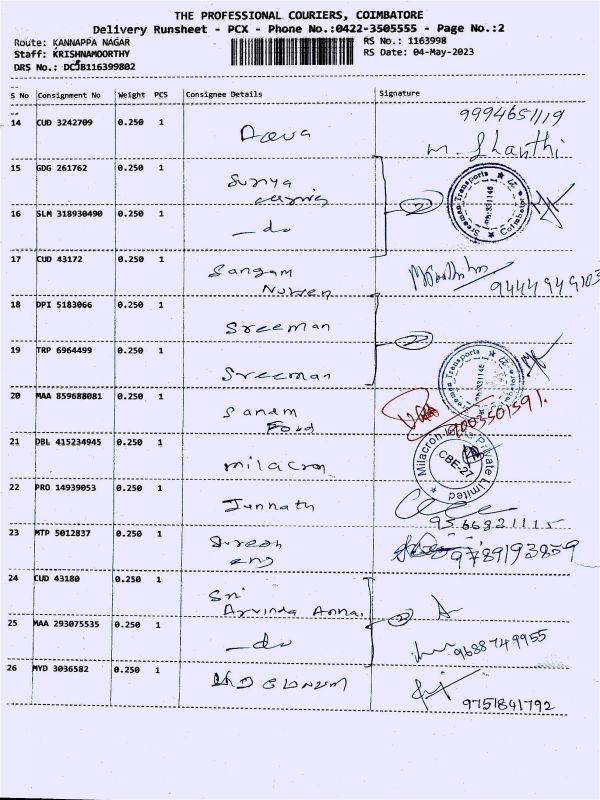 THE PROFESSIONAL COURIERS, COIMBATORE
Delivery Runsheet - PCX - Phone No.:0422-3505555 - Page No.:2
Route: KANNAPPA NAGAR
RS No.: 1163998
Staff: KRISHNAMOORTHY
RS Date: 04-May-2023
DRS No.: DCJB116399802
S No Consignment No Weight PCS Consignee Details Signature
9994651119
14 CUD 3242709 0.250 1
m. Shanthi
15 GDG 261762 0.250 1 Surya
Sreeman Transports
Coimbatore
16 SLM 318930490 0.250 1 -do
17 CUD 43172 0.250 1 Sangam
9444949103
18 DPI 5183066 0.250 1 Sreeman
19 TRP 6964499 0.250 1 Sreeman
Sreeman Transports
Coimbatore
20 MAA 859688081 0.250 1
Food
9003501591.
21 DBL 415234945 0.250 1 milacron
Milacron India Private Limited
CBE-27
22 PRO 14939053 0.250 1 Jannath
9566321115
23 MTP 5012837 0.250 1 Suresh
eng
9789193859
24 CUD 43180 0.250 1 Sri
Arvinda Annai
25 MAA 293075535 0.250 1 -do
9688749955
26 MYD 3036582 0.250 1
9751841792